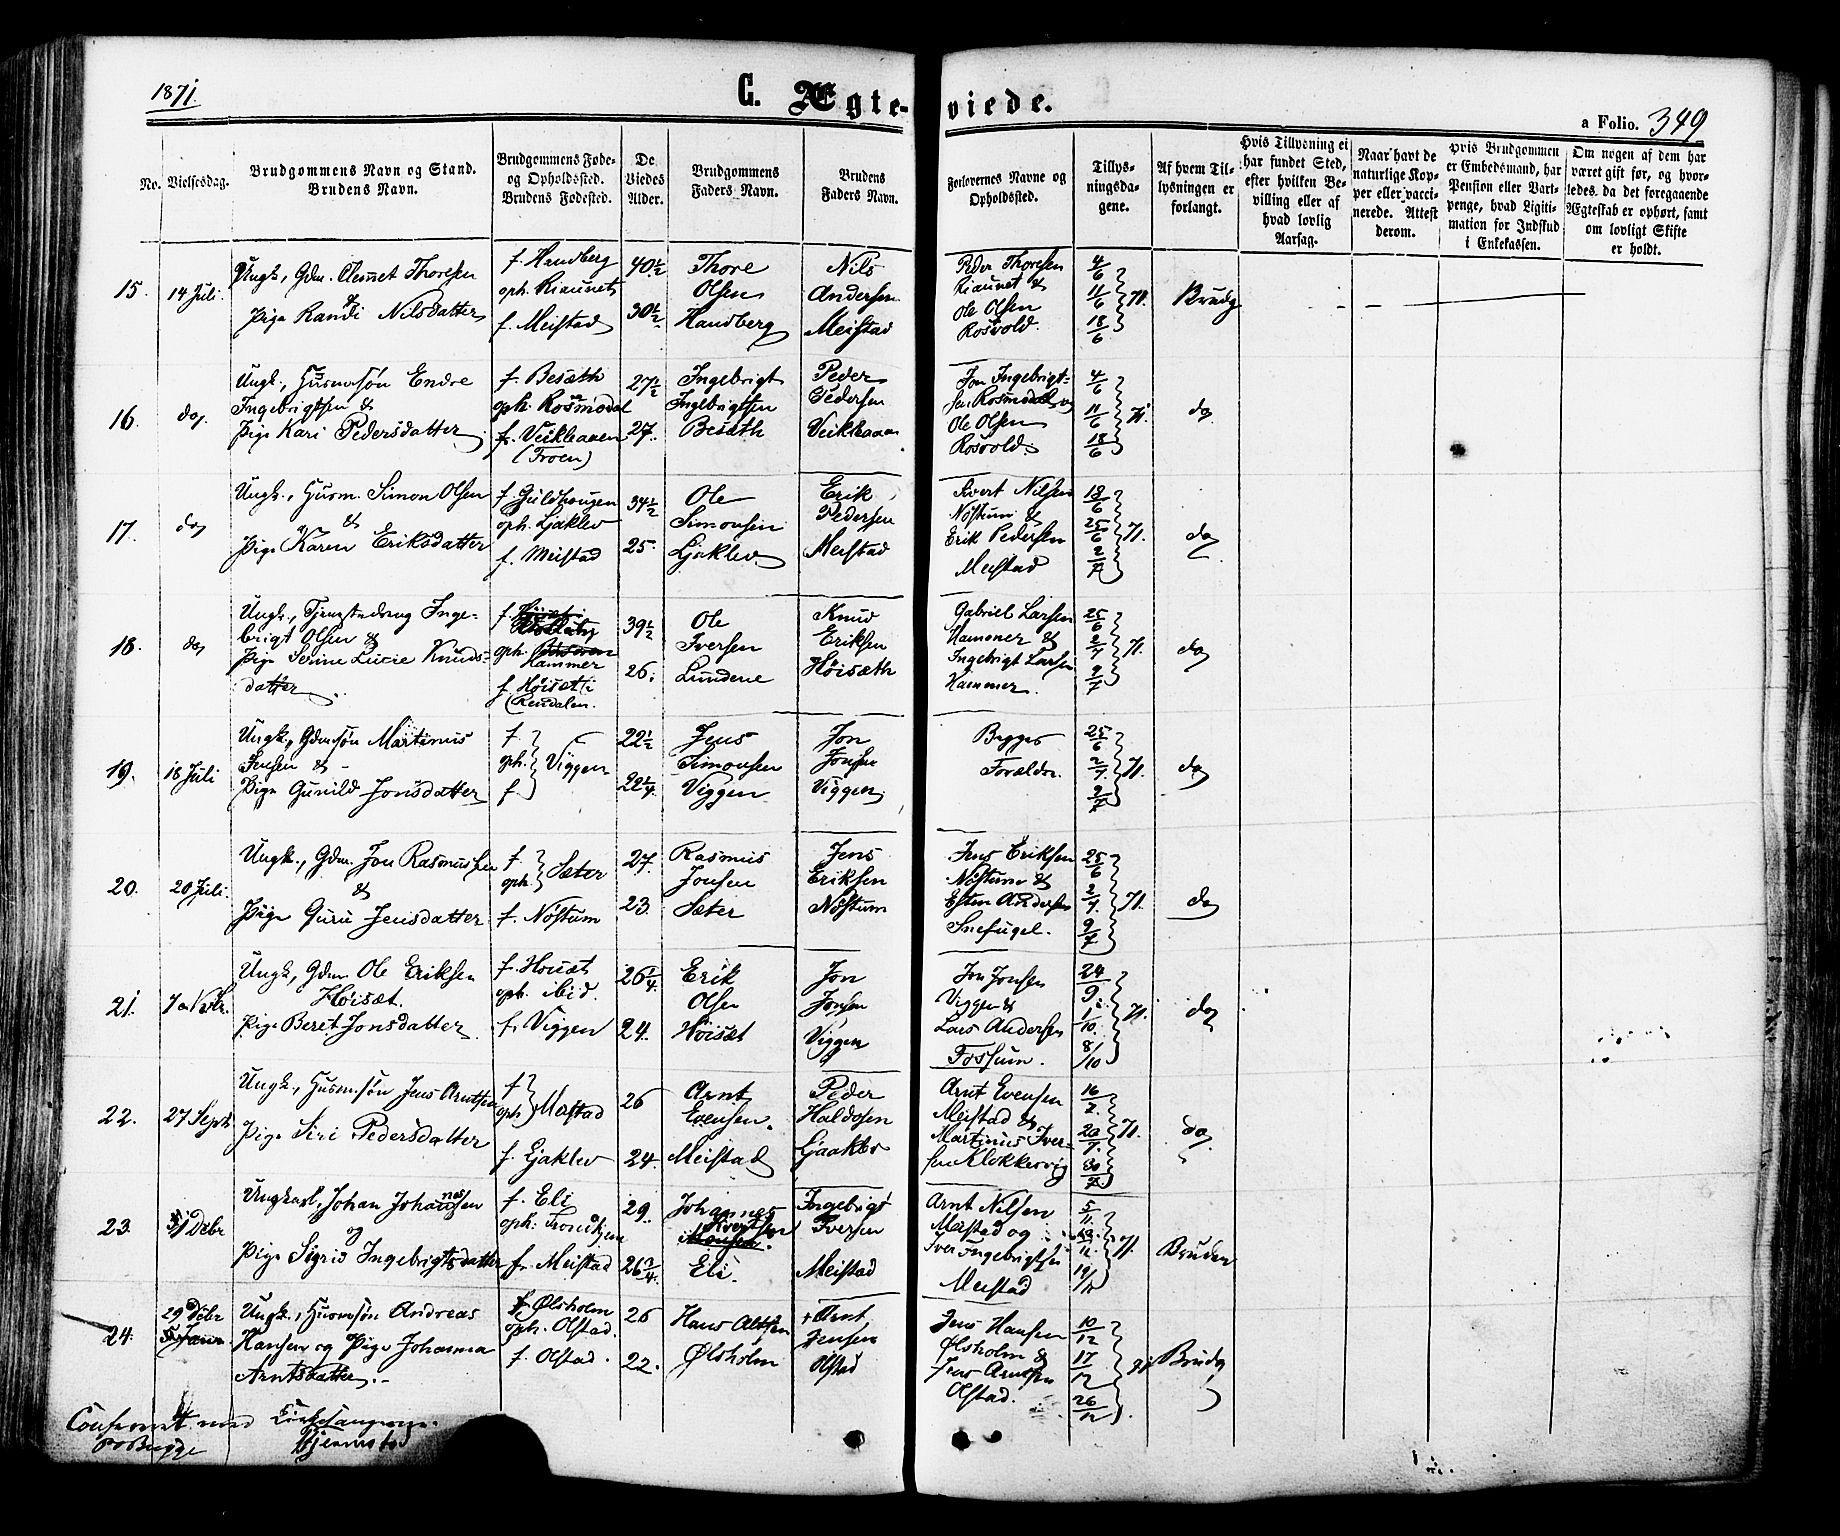 1871.
C. Ægte-viede.
a Folio. 349
No.
Vielsesdag.
Brudgommens Navn og Stand.
Brudens Navn.
Brudgommens Føde-
og Opholdssted.
Brudens Fødested.
De
Viedes
Alder.
Brudgommens
Faders Navn.
Brudens
Faders Navn.
Forlovernes Navne og
Opholdssted.
Tillys-
ningsda-
gene.
Af hvem Til-
lysningen er
forlangt.
Hvis Tillysning ei
har fundet Sted,
efter hvilken Be-
villing eller af
hvad lovlig
Aarsag.
Naar havt de
naturlige Kop-
per eller vacci-
nerede. Attest
derom.
Hvis Brudgommen
er Embedsmand, har
Pension eller Vart-
penge, hvad Legiti-
mation for Indskud
i Enkekassen.
Om nogen af dem har
været gift før, og hvor-
ledes da det foregaaende
Ægteskab er ophørt, samt
om lovligt Skifte
er holdt.
15. 14 Juli.
Ungk., Gdm. Clemet Thoresen
&
Pige Randi Nilsdatter
f. Handberg
oph. Riaunet
f. Meistad
40½
30½
Thore
Olsen
Handberg
Nils
Andersen
Meistad
Peder Thoresen
Riaunet &
Ole Olsen
Rosvold.
4/6
11/6
18/6
71.
Brudg
16. do.
Ungk., Husmsøn Endre
Ingebrigtsen &
Pige Kari Pedersdatter
f. Besæth
oph. Rosmodal
f. Veiklhaaen
(Froen)
27½
27.
Ingebrigt
Ingebrigtsen
Besæth
Peder
Pedersen
Veiklhaaen
Jon Ingebrigt-
sen Rosmodal og
Ole Olsen
Rosvold.
4/6
11/6
18/6
71.
do
17. do
Ungk., Husm. Simon Olsen
&
Pige Karen Eriksdatter
f. Guldhaugen
oph. Gjaklev
f. Meistad
34½
25.
Ole
Simonsen
Gjaklev
Erik
Pedersen
Meistad
Sivert Nilsen
Nøstum &
Erik Pedersen
Meistad
18/6
25/6
2/7
71.
do
18. do
Ungk., Tjenstedreng Inge-
brigt Olsen &
Pige Serine Lucie Knuds-
datter
f.
oph.
Hammer
f. Høisæt i
(Rendalen.
39½
26.
Ole
Iversen
Lundene
Knud
Eriksen
Høisæth
Gabriel Larsen
Hammer &
Ingebrigt Larsen
Hammer.
25/6
2/7
9/7
71.
do
19. 18 Juli
Ungk., Gdmsøn Martinus
Jensen &
Pige Gunild Jonsdatter
f.
oph. Viggen
f
22½
22¼
Jens
Simonsen
Viggen
Jon
Jonsen
Viggen
Begges
Forældre
25/6
2/7
9/7
71.
do
20. 20 Juli.
Ungk., Gdm. Jon Rasmussen
&
Pige Guru Jensdatter
f
oph. Sæter
f. Nøstum
27.
23
Rasmus
Jonsen
Sæter
Jens
Eriksen
Nøstum
Jens Eriksen
Nøstum &
Esten Andersen
Snefugel.
25/6
2/7
9/7
71.
do
21.
Ungk., Gdm. Ole Eriksen
Høisæt.
Pige Beret Jonsdatter
f. Høisæt
oph. ibid.
f. Viggen
26¼
24.
Erik
Olsen
Høisæt
Jon
Jonsen
Viggen
Jon Jonsen
Viggen &
Lars Andersen
Fossum.
24/9
1/10
8/10
71.
do
22. 27 Sept
Ungk., Husmsøn Jens Arntsen
Pige Siri Pedersdatter
f
oph. Mæstad
f. Gjaklev
26
24.
Arnt
Evensen
Meistad
Peder
Haldosen
Gjaaklev
Arnt Evensen
Meistad &
Martinus Iver-
sen Klokkervig
16/7
71.
do
23. Debr
Ungkarl, Johan Johannesen
og
Pige Sigrid Ingebrigtsdatter
f. Eli
oph. Trondhjem
f. Meistad
29.
26¾
Johannes
Sivertsen
Eli.
Ingebrigt
Iversen
Meistad
Arnt Nilsen
Mæstad og
Iver Ingebrigtsen
Meistad
5/11
12/11
19/11
71.
Bruden
24. 29 Debr
Ungk., Husmsøn Andreas
Hansen og Pige Johanna
Arntsdatter.
f. Ølsholm
oph. Olstad.
f. Olstad.
26
22.
Hans
Ølsholm
Arnt
Jensen
Olstad
Jens Hansen
Ølsholm &
Jens Arntsen
Olstad.
10/12
17/12
26/12
71
Brudg
Conferert med Kirkesangeren
Bugge